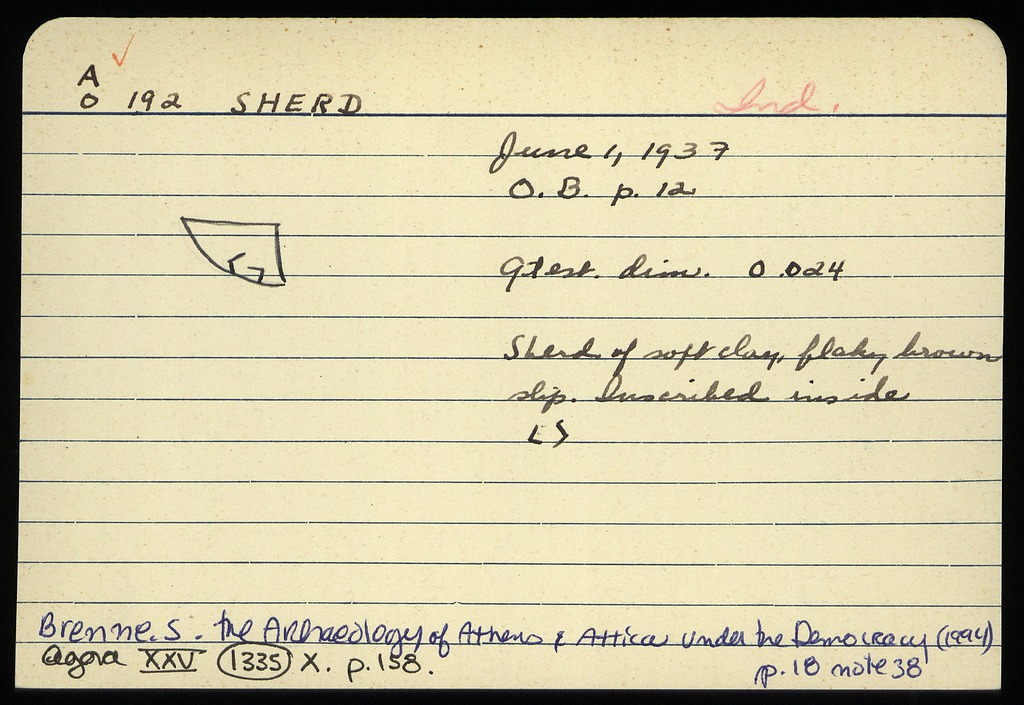 A
O 192 SHERD Ind.
June 1, 1937
O.B. p. 12
Gtest. dim. 0.024
Sherd of soft clay, flaky brown
slip. Inscribed inside
Brenne.S. the Archaeology of Athens & Attica under the Democracy (1994)
p.18 note 38
Agora XXV 1335 X. p.158.